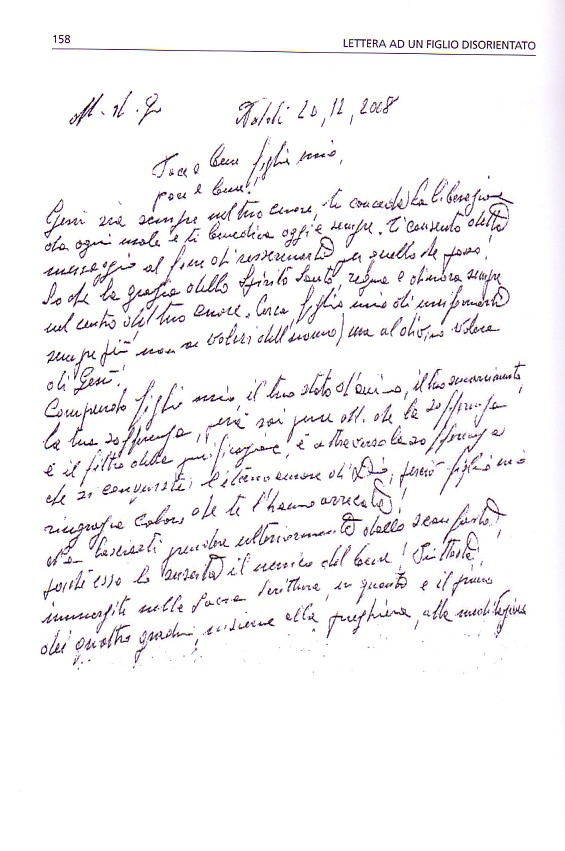 158
LETTERA AD UN FIGLIO DISORIENTATO
20, 12, 2008
Pace e bene figlio mio,
pace e bene!
Gesù sia sempre nel tuo cuore, ti conceda la liberazione
da ogni male e ti benedica oggi e sempre. Ti consento detto
messaggio al fine di rasserenarti per quello che posso!
So che la grazia dello Spirito Santo, regna e dimora sempre
nel centro del tuo cuore. Cerca figlio mio di uniformarti
sempre più non ai voleri dell'uomo, ma al divino volere
di Gesù!
Comprendo figlio mio il tuo stato d'animo, il tuo
la tua sofferenza, però sai pure che la sofferenza
è il filtro della purificazione, è attraverso la sofferenza
che si conquista l'eterno amore di Dio, perciò figlio mio
ringrazia coloro che te l'hanno arrecata!
Non lasciarti prendere ulteriormente dallo sconforto!
poiché esso lo suscita il nemico del bene! Piuttosto,
immergiti nella Sacra Scrittura, in quanto è il primo
dei quattro gradini, insieme alla preghiera, alla meditazione